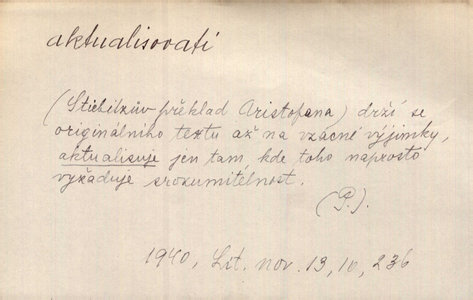 aktualisovati
(Stiebitzův překlad Aristofana) drží se
originálního textu až na vzácné výjimky,
aktualisuje jen tam, kde toho naprosto
vyžaduje srozumitelnost.
(P.).
1940, Lit. nov. 13, 10, 236